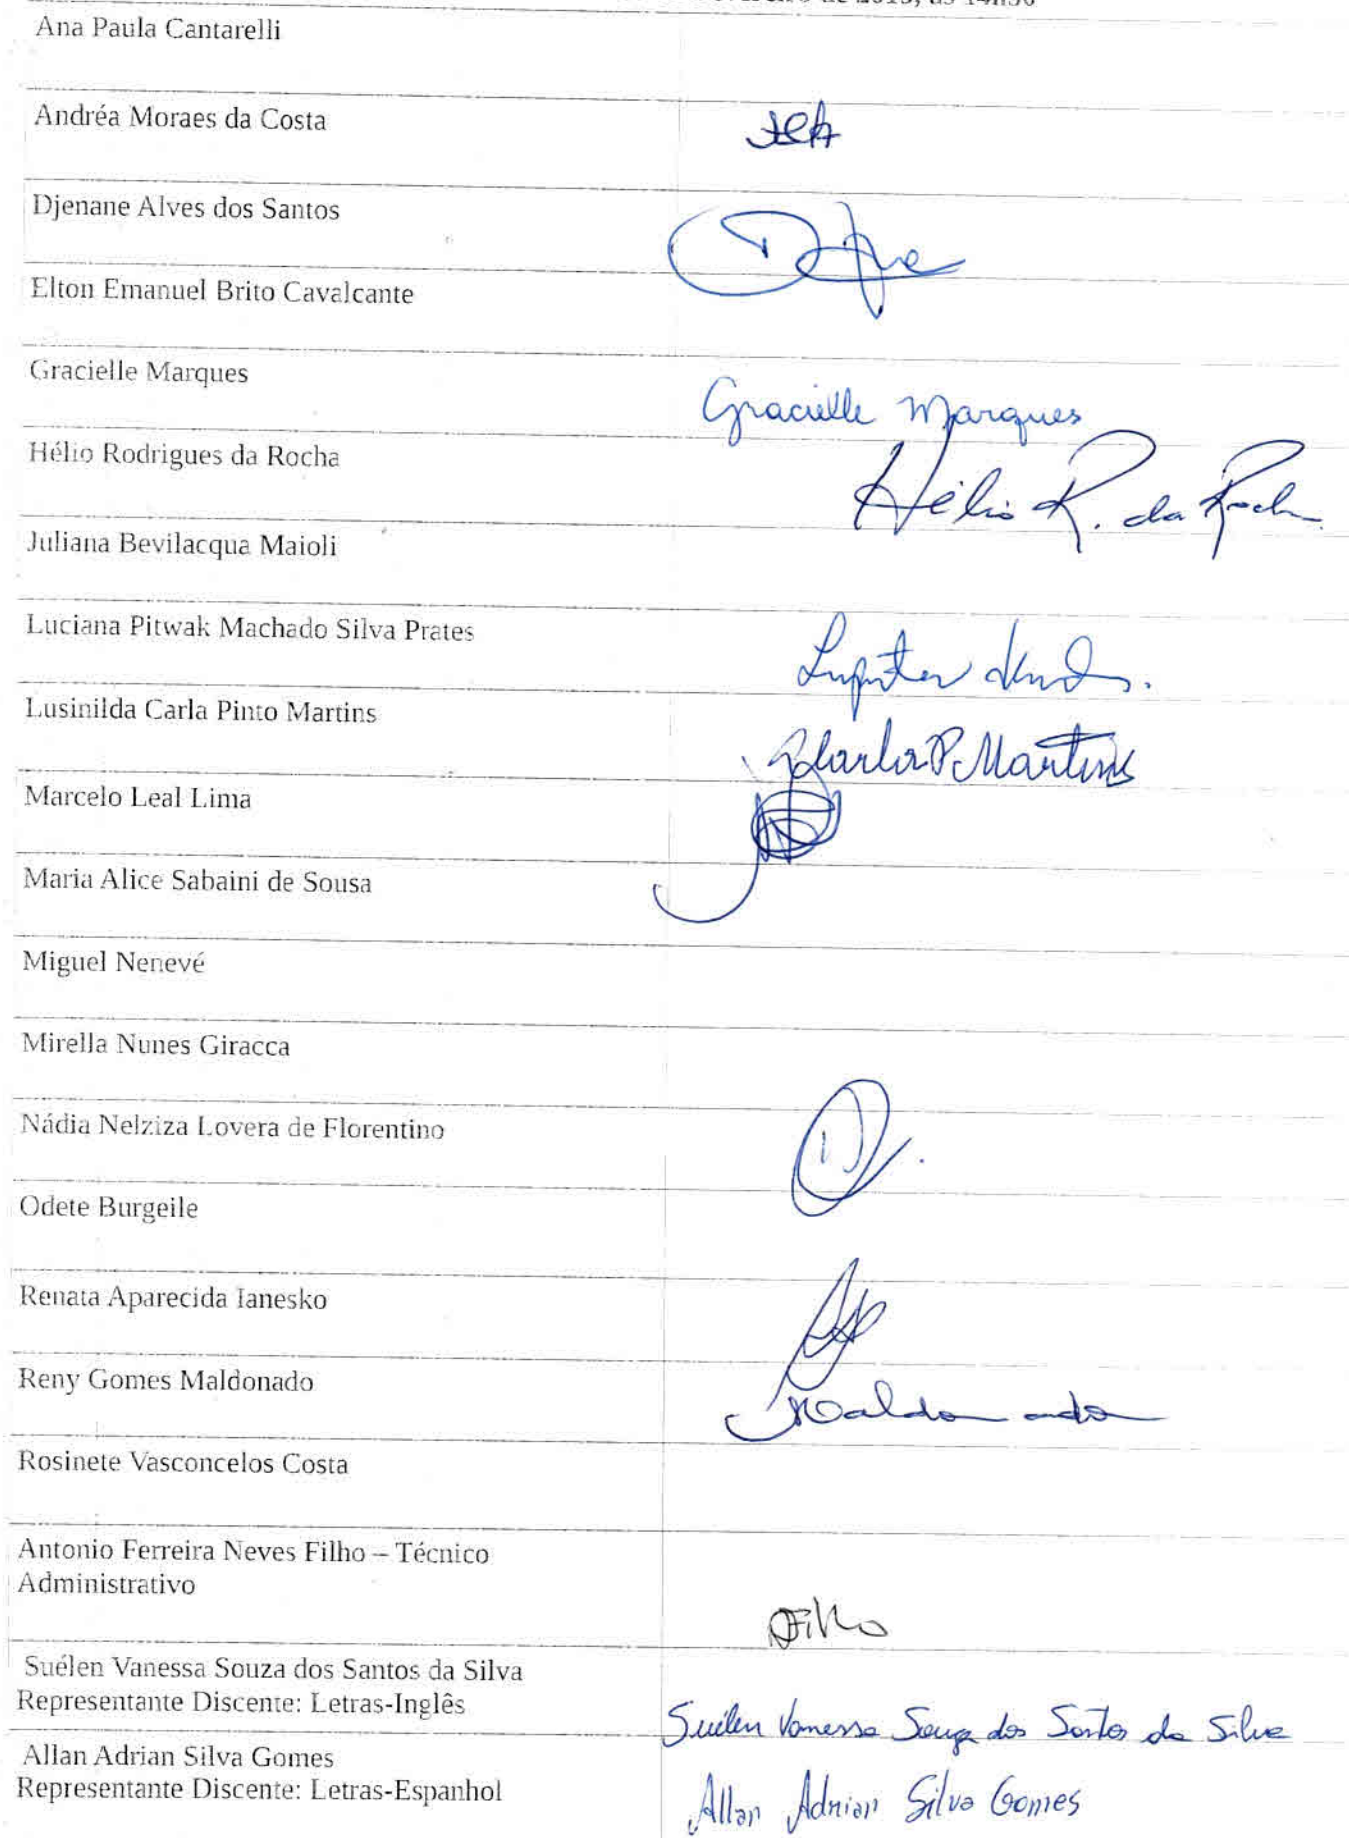 de 2013, às 14h30
Ana Paula Cantarelli
Andréa Moraes da Costa
Djenane Alves dos Santos
Elton Emanuel Brito Cavalcante
Gracielle Marques
Gracielle Marques
Hélio Rodrigues da Rocha
Hélio R. da Rocha
Juliana Bevilacqua Maioli
Luciana Pitwak Machado Silva Prates
Lusinilda Carla Pinto Martins
Carla P Martins
Marcelo Leal Lima
Maria Alice Sabaini de Sousa
Miguel Nenevé
Mirella Nunes Giracca
Nádia Nelziza Lovera de Florentino
Odete Burgeile
Renata Aparecida Ianesko
Reny Gomes Maldonado
Maldonado
Rosinete Vasconcelos Costa
Antonio Ferreira Neves Filho – Técnico
Administrativo
Filho
Suélen Vanessa Souza dos Santos da Silva
Representante Discente: Letras-Inglês
Suélen Vanessa Souza dos Santos da Silva
Allan Adrian Silva Gomes
Representante Discente: Letras-Espanhol
Allan Adrian Silva Gomes